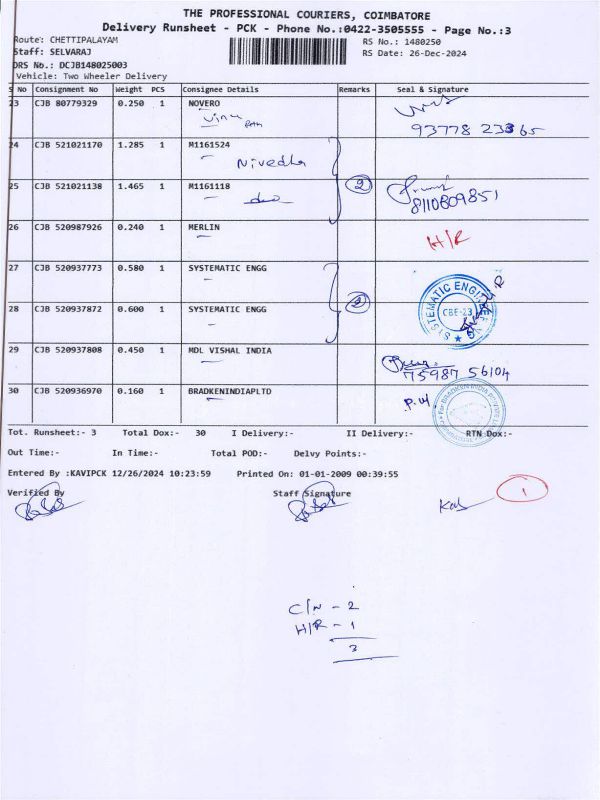 THE PROFESSIONAL COURIERS, COIMBATORE
Delivery Runsheet - PCK - Phone No.:0422-3505555 - Page No.:3
Route: CHETTIPALAYAM
RS No.: 1480250
Staff: SELVARAJ
RS Date: 26-Dec-2024
DRS No.: DCJB148025003
Vehicle: Two Wheeler Delivery
S No Consignment No Weight PCS Consignee Details Remarks Seal & Signature
23 CJB 80779329 0.250 1 NOVERO
93778 23365
24 CJB 521021170 1.285 1 M1161524
Nivedha
25 CJB 521021138 1.465 1 M1161118 2
8110809851
26 CJB 520987926 0.240 1 MERLIN
H/R
27 CJB 520937773 0.580 1 SYSTEMATIC ENGG
2
SYSTEMATIC ENGINEERING
CBE-23
28 CJB 520937872 0.600 1 SYSTEMATIC ENGG
29 CJB 520937808 0.450 1 MDL VISHAL INDIA
75987 56104
30 CJB 520936970 0.160 1 BRADKENINDIAPLTD
For BRADKEN INDIA PRIVATE
Tot. Runsheet:- 3 Total Dox:- 30 I Delivery:- II Delivery:- RTN Dox:-
Out Time:- In Time:- Total POD:- Delvy Points:-
Entered By :KAVIPCK 12/26/2024 10:23:59 Printed On: 01-01-2009 00:39:55
Verified By Staff Signature
1
C/N - 2
H/R - 1
3